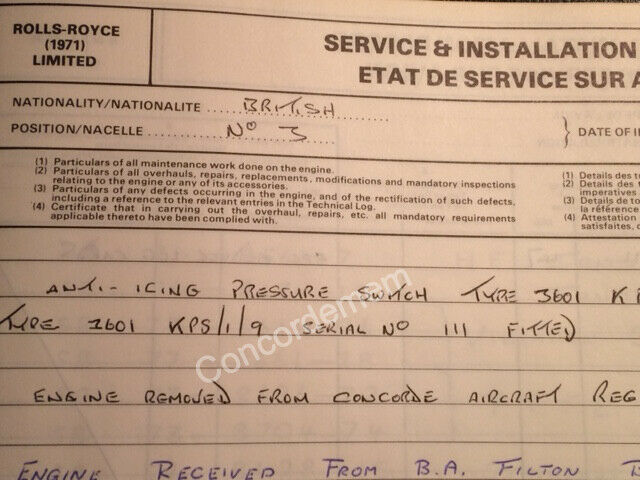 ROLLS-ROYCE
(1971)
LIMITED
SERVICE & INSTALLATION
ETAT DE SERVICE SUR A
NATIONALITY/NATIONALITE ... BRITISH
POSITION/NACELLE ... Nº 3
} DATE OF I
(1) Particulars of all maintenance work done on the engine.
(2) Particulars of all overhauls, repairs, replacements, modifications and mandatory inspections
relating to the engine or any of its accessories.
(3) Particulars of any defects occurring in the engine, and of the rectification of such defects,
including a reference to the relevant entries in the Technical Log.
(4) Certificate that in carrying out the overhaul, repairs, etc. all mandatory requirements
applicable thereto have been complied with.
(1) Details des t
(2) Details des
imperatives
(3) Details de to
la référence
(4) Attestation
satisfaites, d
ANTI-ICING PRESSURE SWITCH TYPE 3601 K
TYPE 2601 KPS/1/9 SERIAL NO 111 FITTED
Concordemem
ENGINE REMOVED FROM CONCORDE AIRCRAFT REG
ENGINE RECEIVED FROM B.A. FILTON